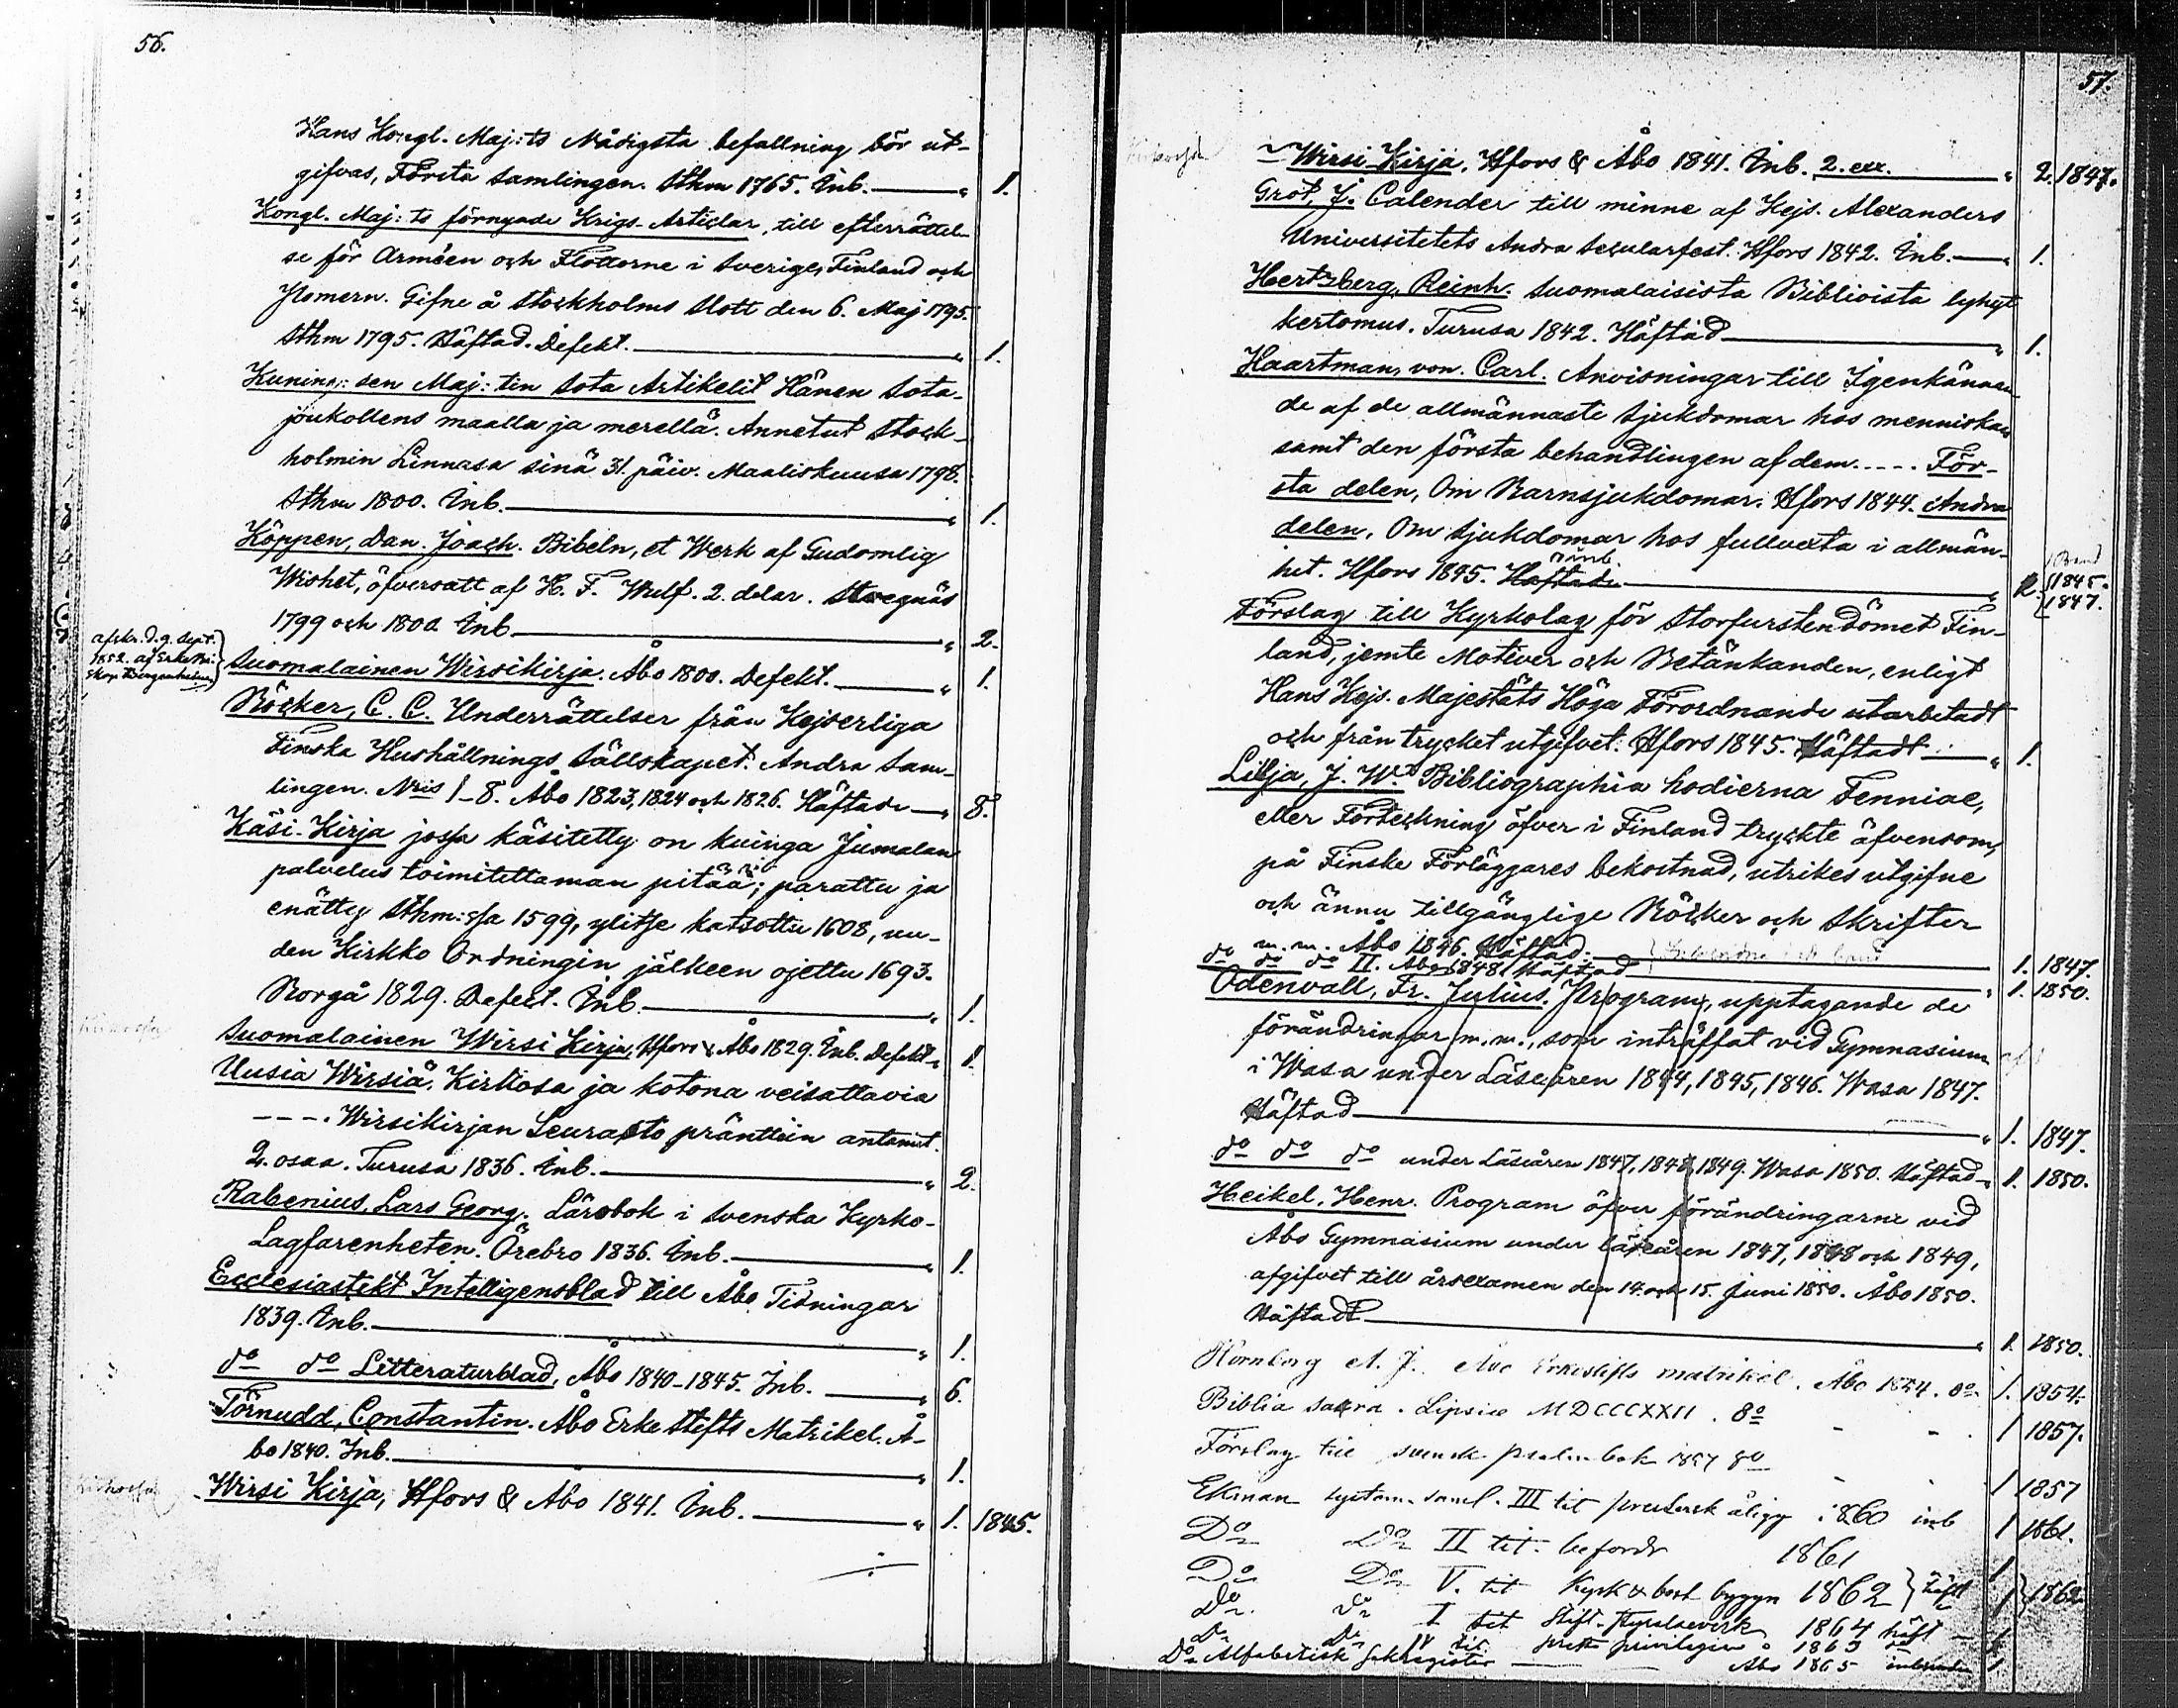 56.
Hans Kongl. Maj:ts Nådigsta befallning bör ut-
gifvas, Första Samlingen. Sthm 1765. Inb. " 1.
Kongl. Maj:ts förnyade Krigs-Articlar, till efterrättel-
se för Arméen och Flottorne i Sverige, Finland och
Pomern. Gifne å Stockholms Slott den 6. Maj 1795.
Sthm 1795. Häftad. Defekt. " 1.
Kuning:sen Maj:tin Sota Artikelit Hänen Sota-
joukollens maalla ja merellä. Annetut Stock-
holmin Linnasa sinä 31. päiv. Maaliskuusa 1798.
Sthm 1800. Inb. " 1.
Köppen, Dan. Joach. Bibeln, et Werk af Gudomlig
Wishet, öfversatt af H. F. Wulf. 2. delar. Stregnäs
1799 och 1800. Inb. " 2.
afskr. d. 9. Sept.
1852. af Erkebi-
skop Bergenheim
Suomalainen Wirsikirja. Åbo 1800. Defekt. " 1.
Böcker, C. C. Underrättelser från Kejserliga
Finska Hushållnings Sällskapet. Andra Sam-
lingen. Nris 1-8. Åbo 1823, 1824 och 1826. Häftade " 8.
Käsi-Kirja jossa käsitetty on kuinga Jumalan
palvelus toimitettaman pitää; parattu ja
enätty Sthm:ssa 1599, ylitse katsottu 1608, uu-
den Kirkko Ordningin jälkeen ojettu 1693.
Borgå 1829. Defect. Inb. " 1.
Suomalainen Wirsi Kirja, Hfors & Åbo 1829. Inb. Defekt " 1.
Uusia Wirsiä, Kirkosa ja kotona veisattavia
----. Wirsikirjan Seurasto pränttiin antanut.
2. osaa. Turusa 1836. Inb. " 2.
Rabenius, Lars Georg. Lärobok i Svenska Kyrko-
Lagfarenheten. Örebro 1836. Inb. " 1.
Ecclesiastikt Intelligensblad till Åbo Tidningar
1839. Inb. " 1.
do do Litteraturblad, Åbo 1840-1845. Inb. " 6.
Törnudd, Constantin. Åbo Erke Stifts Matrikel. Å-
bo 1840. Inb. " 1.
Wirsi Kirja, Hfors & Åbo 1841. Inb. " 1. 1845.
57.
Wirsi-Kirja, Hfors & Åbo 1841. Inb. 2. exx. " 2. 1847.
Grot, J. Calender till minne af Kejs. Alexanders
Universitetets Andra Secularfest. Hfors 1842. Inb. " 1.
Hertzberg, Reinh. Suomalaisista Biblioista lyhyt
kertomus. Turusa 1842. Häftad " 1.
Haartman, von. Carl. Anvisningar till Igenkännan-
de af de allmännaste Sjukdomar hos menniskan
samt den första behandlingen af dem. ---- För-
sta delen, Om Barnsjukdomar. Hfors 1844. Andra
delen, Om Sjukdomar hos fullvexta i allmän-
het. Hfors 1845. Häftade inb. " 2. 1 Band 1845. 1847.
Förslag till Kyrkolag för Storfurstendömet Fin-
land, jemte Motiver och Betänkanden, enligt
Hans Kejs. Majestäts Höga Förordnande utarbetadt
och från trycket utgifvet. Hfors 1845. Häftadt " 1.
Lilja, J. W. Bibliographia hodierna Fenniae,
eller Förteckning öfver i Finland tryckte äfvensom,
på Finske Förläggares bekostnad, utrikes utgifne
och ännu tillgänglige Böcker och Skrifter
m.m. Åbo 1846. Häftad. 1. 1847.
do do do II. Åbo 1848. Häftad " 1. 1850.
Odenvall, Fr. Julius. Program, upptagande de
förändringar m.m., som inträffat vid Gymnasium
i Wasa under Läseåren 1844, 1845, 1846. Wasa 1847.
Häftad " 1. 1847.
do do do under Läseåren 1847, 1848, 1849. Wasa 1850. Häftad " 1. 1850.
Heikel, Henr. Program öfver förändringarne vid
Åbo Gymnasium under Läseåren 1847, 1848 och 1849,
afgifvet till årsexamen den 14. och 15. Juni 1850. Åbo 1850.
Häftadt " 1. 1850.
Hornborg A. J. Åbo Erkestifts matrikel. Åbo 1854. 8o 1. 1854.
Biblia sacra. Lipsiæ MDCCCXXII. 8o 1 1857.
Förslag till svensk psalmbok 1857 8o 1 1857
Ekman system. saml. III tit presters. åligg 1860 inb 1 1861.
Do Do II tit. befordr 1861 1
Do Do V. tit Kyrk & bost byggn 1862 häft 1 1862
Do Do I tit Stift-styrelseverk 1864 häft
Do Do IV tit prest privilegier 1865
Do Alfabetisk Sakregister Åbo 1865 1